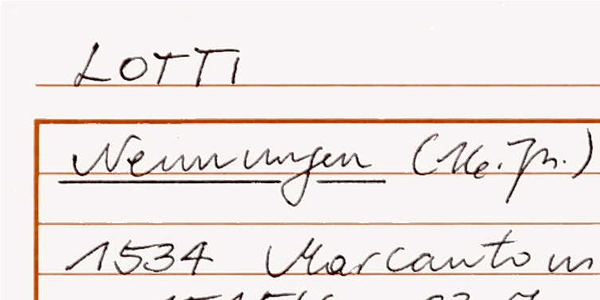 LOTTI
Nennungen (16. Jh.)
1534 Marcanton